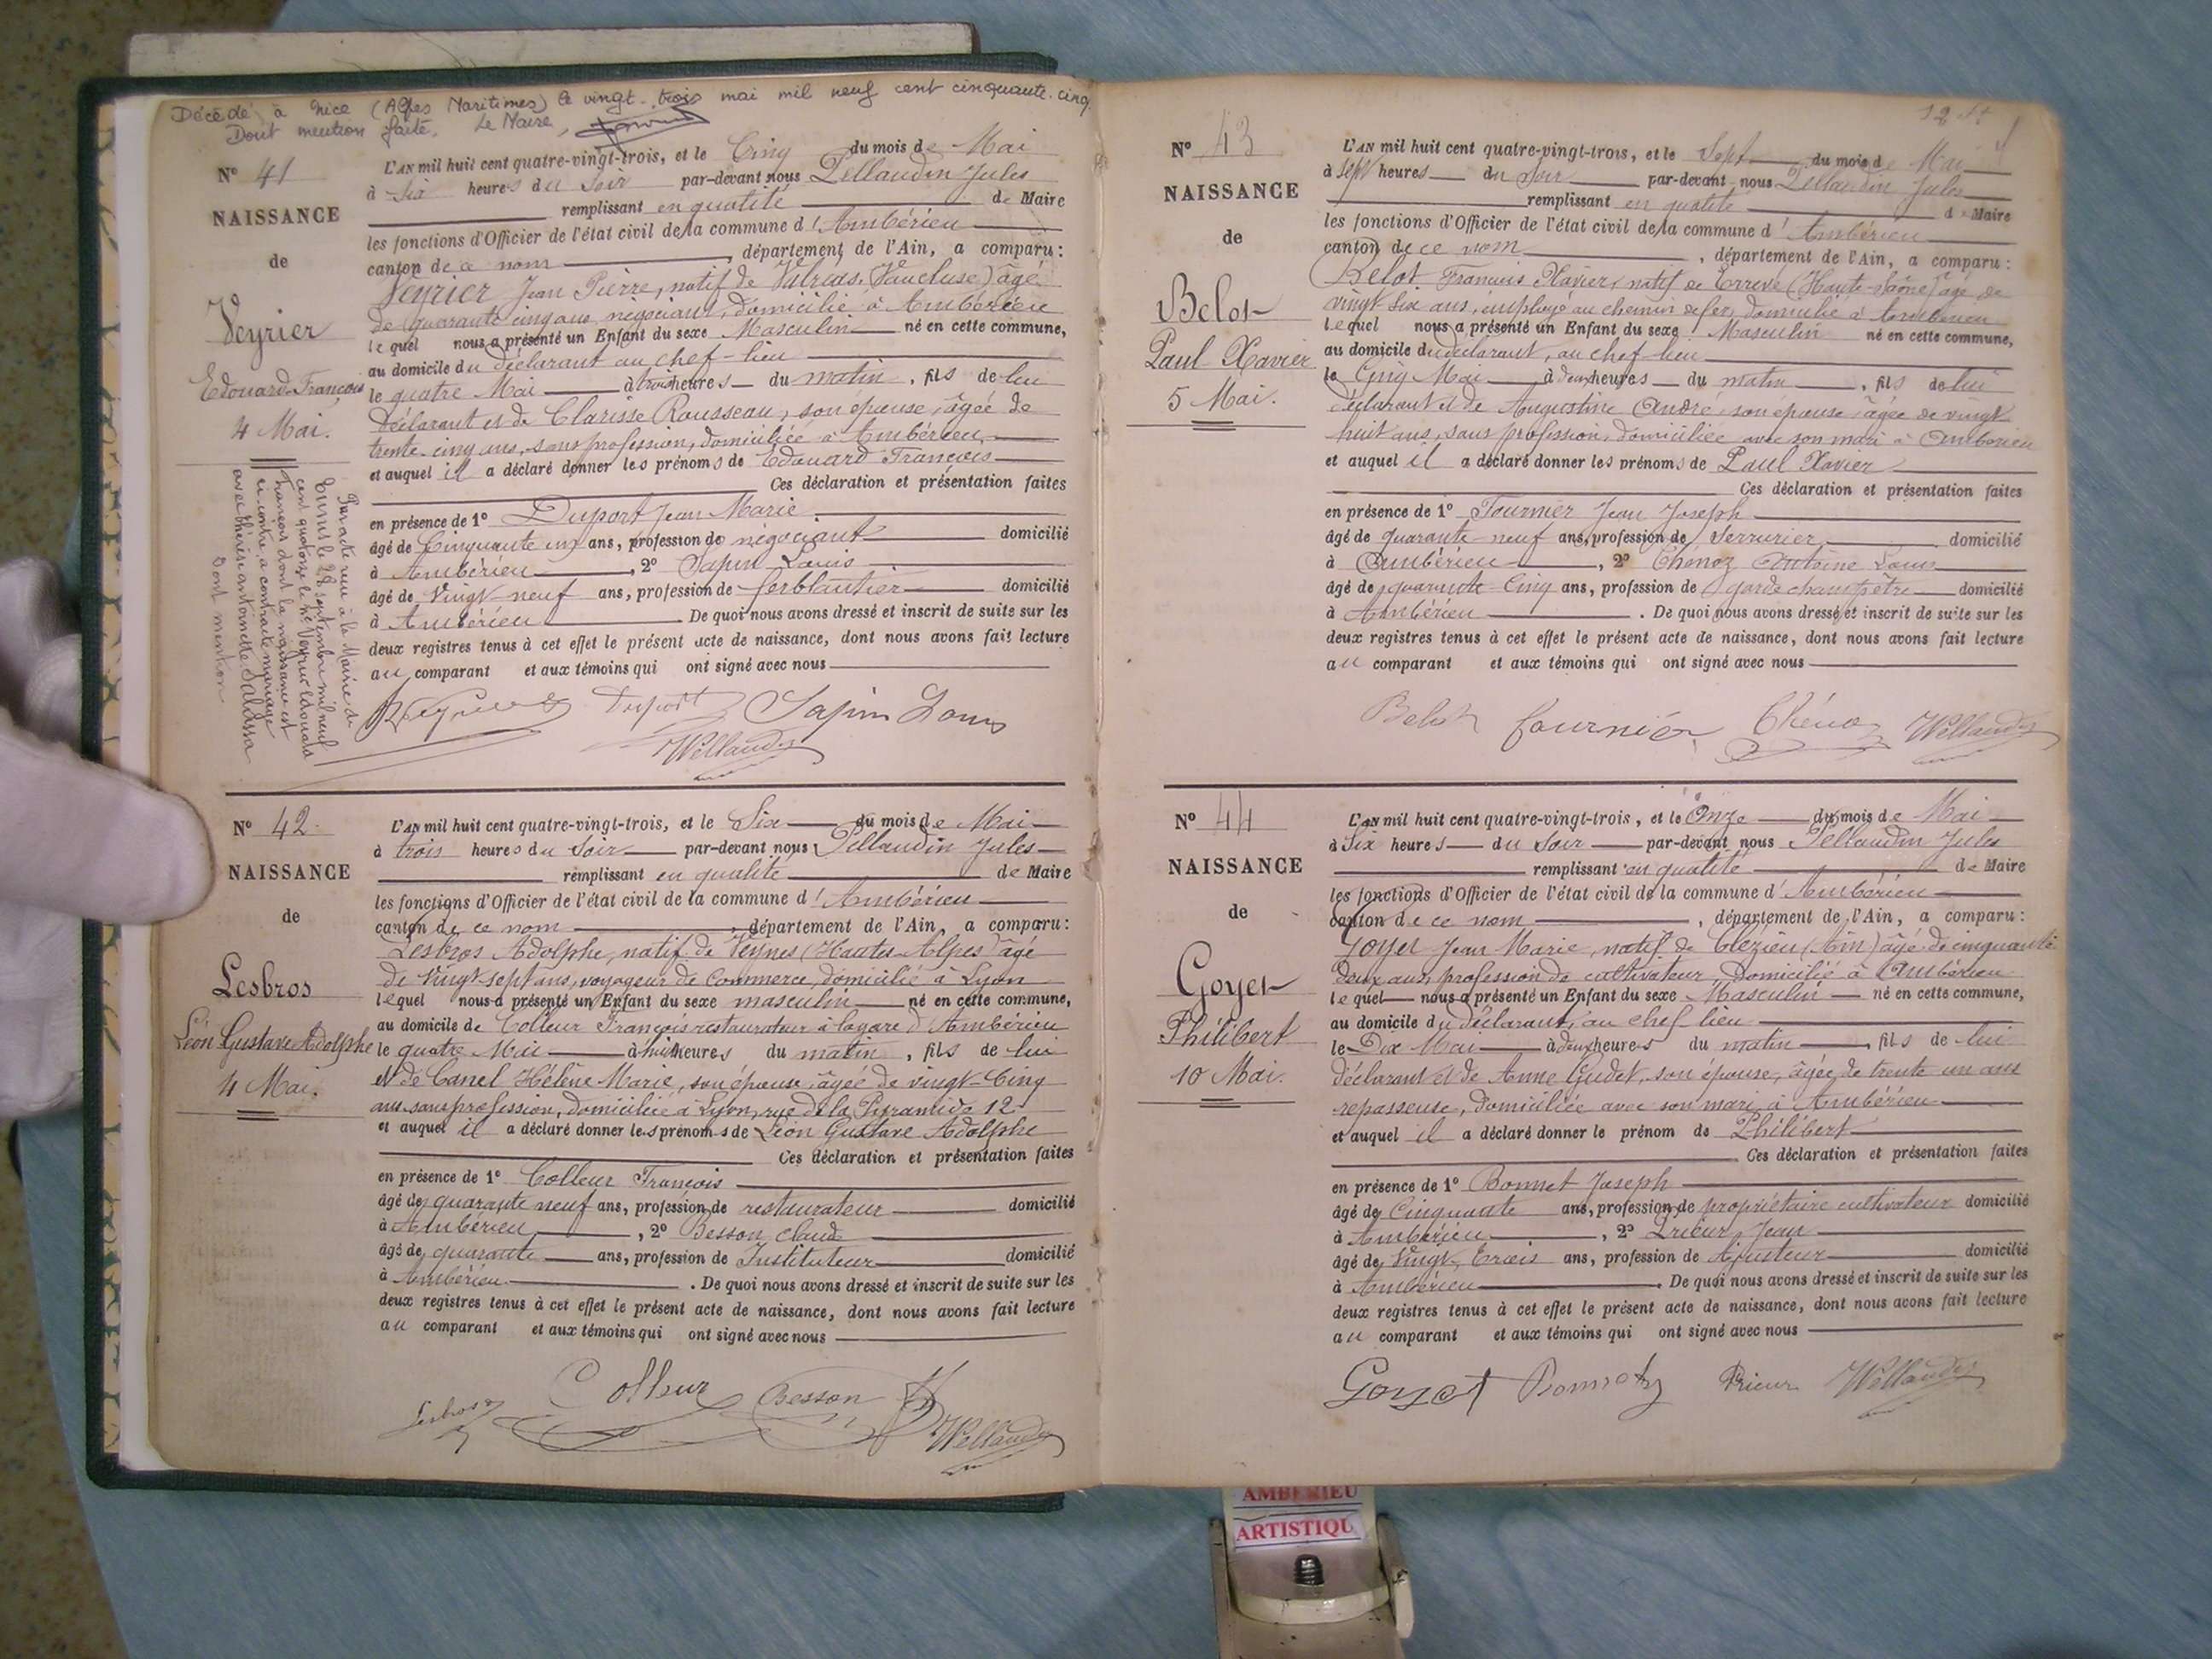 Décédé à Nice (Alpes Maritimes) le vingt-trois mai mil neuf cent cinquante-cinq
Dont mention faite. Le Maire,
N° 41
NAISSANCE
de
Veyrier
Edouard François
4 Mai.
Par acte reçu à la Mairie de
Tunis le 28 septembre mil neuf
cent quatorze le né Veyrier Edouard
François dont la naissance est
ci contre, a contracté mariage
avec Thérèse Antoinette Salassa
Dont mention
L'AN mil huit cent quatre-vingt-trois, et le Cinq du mois de Mai
à Six heures du Soir par-devant nous Pellaudin Jules
remplissant en qualité de Maire
les fonctions d'Officier de l'état civil de la commune d'Ambérieu
canton de ce nom, département de l'Ain, a comparu:
Veyrier Jean Pierre, natif de Valréas (Vaucluse) âgé
de quarante cinq ans, négociant, domicilié à Ambérieu
lequel nous a présenté un Enfant du sexe Masculin né en cette commune,
au domicile du déclarant au chef-lieu
le quatre Mai à trois heures du matin, fils de lui
déclarant et de Clarisse Rousseau, son épouse, âgée de
trente-cinq ans, sans profession, domiciliée à Ambérieu,
et auquel il a déclaré donner les prénoms de Edouard François
Ces déclaration et présentation faites
en présence de 1° Duport Jean Marie
âgé de Cinquante un ans, profession de négociant domicilié
à Ambérieu, 2° Sapin Louis
âgé de Vingt-neuf ans, profession de ferblantier domicilié
à Ambérieu. De quoi nous avons dressé et inscrit de suite sur les
deux registres tenus à cet effet le présent acte de naissance, dont nous avons fait lecture
au comparant et aux témoins qui ont signé avec nous
Duport Sapin Louis
Pellaudin
N° 42
NAISSANCE
de
Lesbros
Léon Gustave Adolphe
4 Mai.
L'AN mil huit cent quatre-vingt-trois, et le Six du mois de Mai
à trois heures du Soir par-devant nous Pellaudin Jules
remplissant en qualité de Maire
les fonctions d'Officier de l'état civil de la commune d'Ambérieu
canton de ce nom, département de l'Ain, a comparu:
Lesbros Adolphe, natif de Veynes (Hautes-Alpes) âgé
de vingt-sept ans, voyageur de Commerce, domicilié à Lyon
lequel nous a présenté un Enfant du sexe masculin né en cette commune,
au domicile de Colleur François restaurateur à la gare d'Ambérieu
le quatre Mai à huit heures du matin, fils de lui
et de Canel Hélène Marie, son épouse, âgée de vingt-Cinq
ans sans profession, domiciliée à Lyon, rue de la Pyramide 12
et auquel il a déclaré donner les prénoms de Léon Gustave Adolphe
Ces déclaration et présentation faites
en présence de 1° Colleur François
âgé de quarante neuf ans, profession de restaurateur domicilié
à Ambérieu, 2° Besson Claude
âgé de quarante ans, profession de Instituteur domicilié
à Ambérieu. De quoi nous avons dressé et inscrit de suite sur les
deux registres tenus à cet effet le présent acte de naissance, dont nous avons fait lecture
au comparant et aux témoins qui ont signé avec nous
Lesbros Colleur Besson
Pellaudin
N° 43
NAISSANCE
de
Belot
Paul Xavier
5 Mai.
L'AN mil huit cent quatre-vingt-trois, et le Sept du mois de Mai
à sept heures du Soir par-devant nous Pellaudin Jules
remplissant en qualité de Maire
les fonctions d'Officier de l'état civil de la commune d'Ambérieu
canton de ce nom, département de l'Ain, a comparu:
Belot François Xavier, natif de (Haute-Saône) âgé de
vingt six ans, employé au chemin de fer, domicilié à Ambérieu
lequel nous a présenté un Enfant du sexe Masculin né en cette commune,
au domicile du déclarant, au chef-lieu
le Cinq Mai à deux heures du matin, fils de lui
déclarant et de Augustine André, son épouse, âgée de vingt
huit ans, sans profession, domiciliée avec son mari à Ambérieu
et auquel il a déclaré donner les prénoms de Paul Xavier
Ces déclaration et présentation faites
en présence de 1° Fournier Jean Joseph
âgé de quarante-neuf ans, profession de Serrurier domicilié
à Ambérieu, 2° Chénoz Antoine Louis
âgé de quarante-Cinq ans, profession de garde champêtre domicilié
à Ambérieu. De quoi nous avons dressé et inscrit de suite sur les
deux registres tenus à cet effet le présent acte de naissance, dont nous avons fait lecture
au comparant et aux témoins qui ont signé avec nous
Belot fournier Chénoz Pellaudin
N° 44
NAISSANCE
de
Goyet
Philibert
10 Mai.
L'AN mil huit cent quatre-vingt-trois, et le Onze du mois de Mai
à Six heures du Soir par-devant nous Pellaudin Jules
remplissant en qualité de Maire
les fonctions d'Officier de l'état civil de la commune d'Ambérieu
canton de ce nom, département de l'Ain, a comparu:
Goyet Jean Marie, natif de Cleyzieu (Ain) âgé de cinquante
deux ans, profession de cultivateur, domicilié à Ambérieu
lequel nous a présenté un Enfant du sexe Masculin né en cette commune,
au domicile du déclarant, au chef-lieu
le Dix Mai à deux heures du matin, fils de lui
déclarant et de Anne Gudet, son épouse, âgée de trente un ans
repasseuse, domiciliée avec son mari à Ambérieu
et auquel il a déclaré donner le prénom de Philibert
Ces déclaration et présentation faites
en présence de 1° Bonnet Joseph
âgé de Cinquante ans, profession de propriétaire cultivateur domicilié
à Ambérieu, 2° Prieur Jean
âgé de Vingt-Trois ans, profession de Ajusteur domicilié
à Ambérieu. De quoi nous avons dressé et inscrit de suite sur les
deux registres tenus à cet effet le présent acte de naissance, dont nous avons fait lecture
au comparant et aux témoins qui ont signé avec nous
Goyet Bonnet Prieur Pellaudin
AMBERIEU
ARTISTIQU